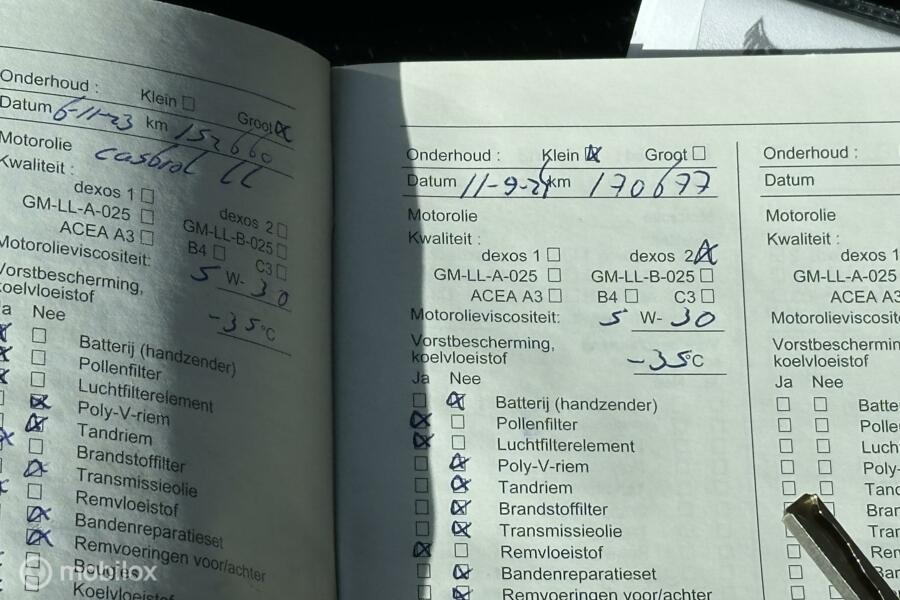 Onderhoud : Klein Groot
Datum 6-11-23 km 152660
Motorolie castrol LL
Kwaliteit :
dexos 1 dexos 2
GM-LL-A-025 GM-LL-B-025
ACEA A3 B4 C3
Motorolieviscositeit: 5 W- 30
Vorstbescherming,
koelvloeistof -35°C
Ja Nee
Batterij (handzender)
Pollenfilter
Luchtfilterelement
Poly-V-riem
Tandriem
Brandstoffilter
Transmissieolie
Remvloeistof
Bandenreparatieset
Remvoeringen voor/achter
Koelvloeistof
mobilox
Onderhoud : Klein Groot
Datum 11-9-24 km 170677
Motorolie
Kwaliteit :
dexos 1 dexos 2
GM-LL-A-025 GM-LL-B-025
ACEA A3 B4 C3
Motorolieviscositeit: 5 W- 30
Vorstbescherming,
koelvloeistof -35°C
Ja Nee
Batterij (handzender)
Pollenfilter
Luchtfilterelement
Poly-V-riem
Tandriem
Brandstoffilter
Transmissieolie
Remvloeistof
Bandenreparatieset
Remvoeringen voor/achter
Onderhoud :
Datum
Motorolie
Kwaliteit :
dexos 1
GM-LL-A-025
ACEA A3
Motorolieviscosite
Vorstbescherming
koelvloeistof
Ja Nee
Batte
Polle
Luch
Poly-
Tand
Bran
Tran
Rem
Ban
Ren